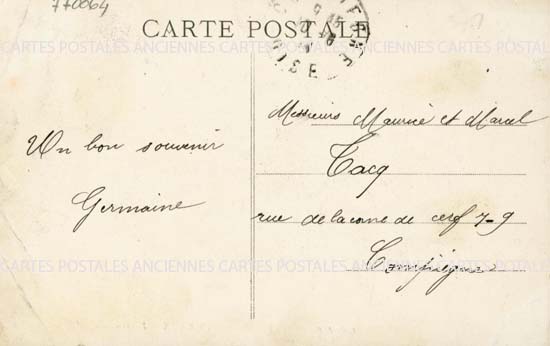 770064
CARTE POSTALE
OISE
CARTES POSTALES ANCIENNES CARTES POSTALES ANCIENNES CARTES POSTALES
Messieurs Maurice et Marcel
Un bon souvenir
Tacq
Germaine
rue de la corne de cerf 7-9
CARTES POSTALES ANCIENNES CARTES POSTALES ANCIENNES CARTES POSTALES
Compiègne